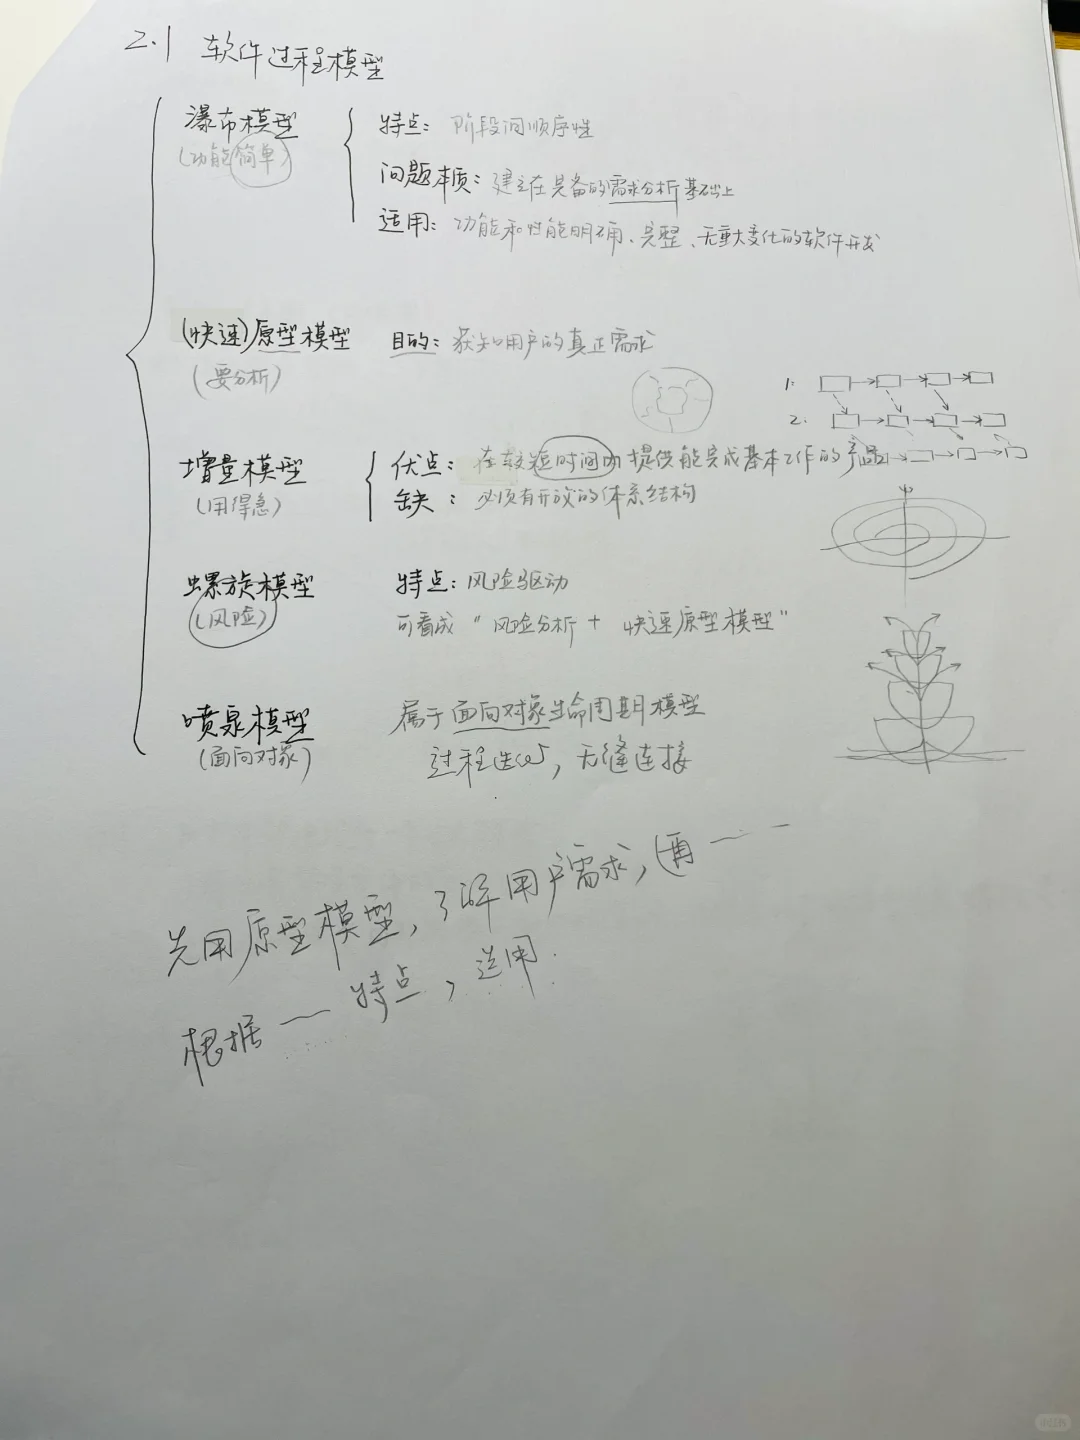 2.1 软件过程模型
瀑布模型
(功能简单)
特点: 阶段间顺序性
问题本质: 建立在完备的需求分析基础上
适用: 功能和性能明确、完整、无重大变化的软件开发
(快速)原型模型
(要分析)
目的: 获知用户的真正需求
1:
2.
增量模型
(用得急)
优点: 在较短时间内提供能完成基本工作的产品
缺: 必须有开放的体系结构
螺旋模型
(风险)
特点: 风险驱动
可看成 "风险分析 + 快速原型模型"
喷泉模型
(面向对象)
属于面向对象生命周期模型
过程迭代, 无缝连接
先用原型模型, 了解用户需求, (再 ——
根据 — 特点, 选用.